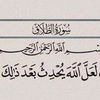 سُورَةُ الطَّلَاقِ
بِسْمِ اللَّهِ الرَّحْمَٰنِ الرَّحِيمِ
لَعَلَّ اللَّهَ يُحْدِثُ بَعْدَ ذَٰلِكَ